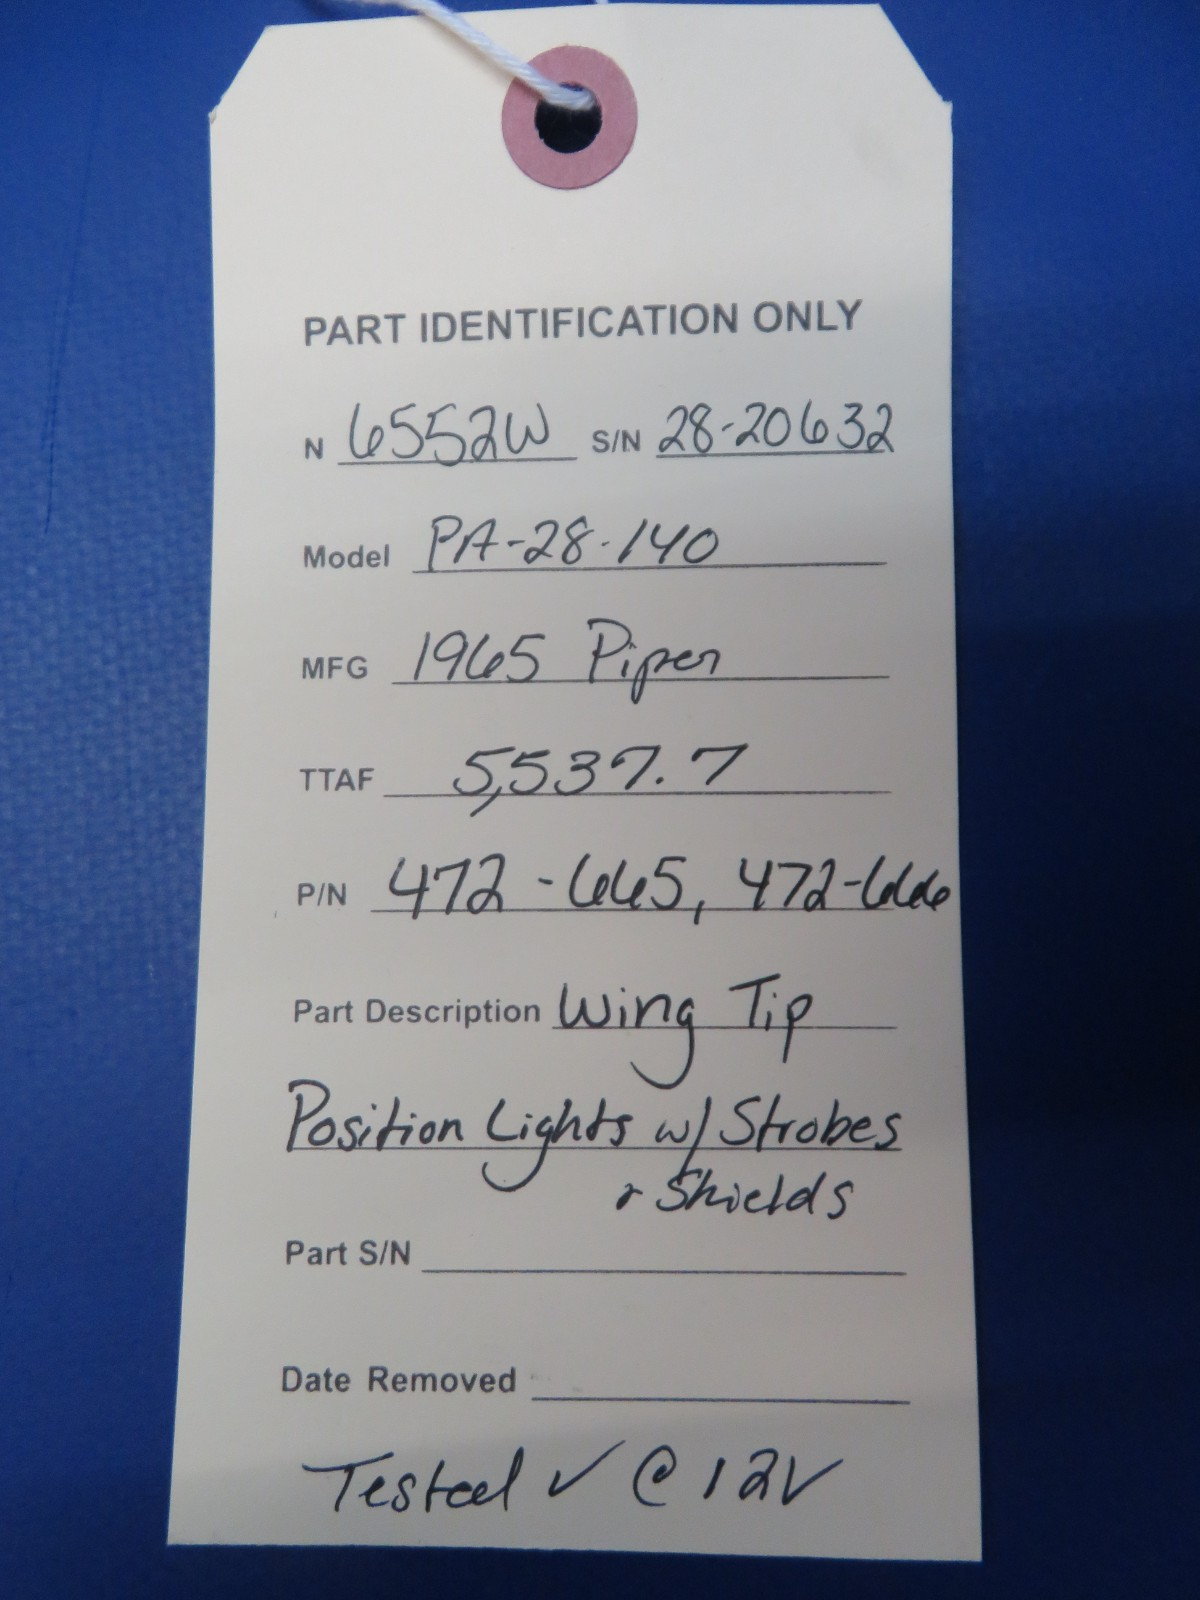 PART IDENTIFICATION ONLY
N 6552W S/N 28-20632
Model PA-28-140
MFG 1965 Piper
TTAF 5,537.7
P/N 472-665, 472-666
Part Description Wing Tip
Position Lights w/ Strobes
& Shields
Part S/N
Date Removed
Tested ✓ @ 12V